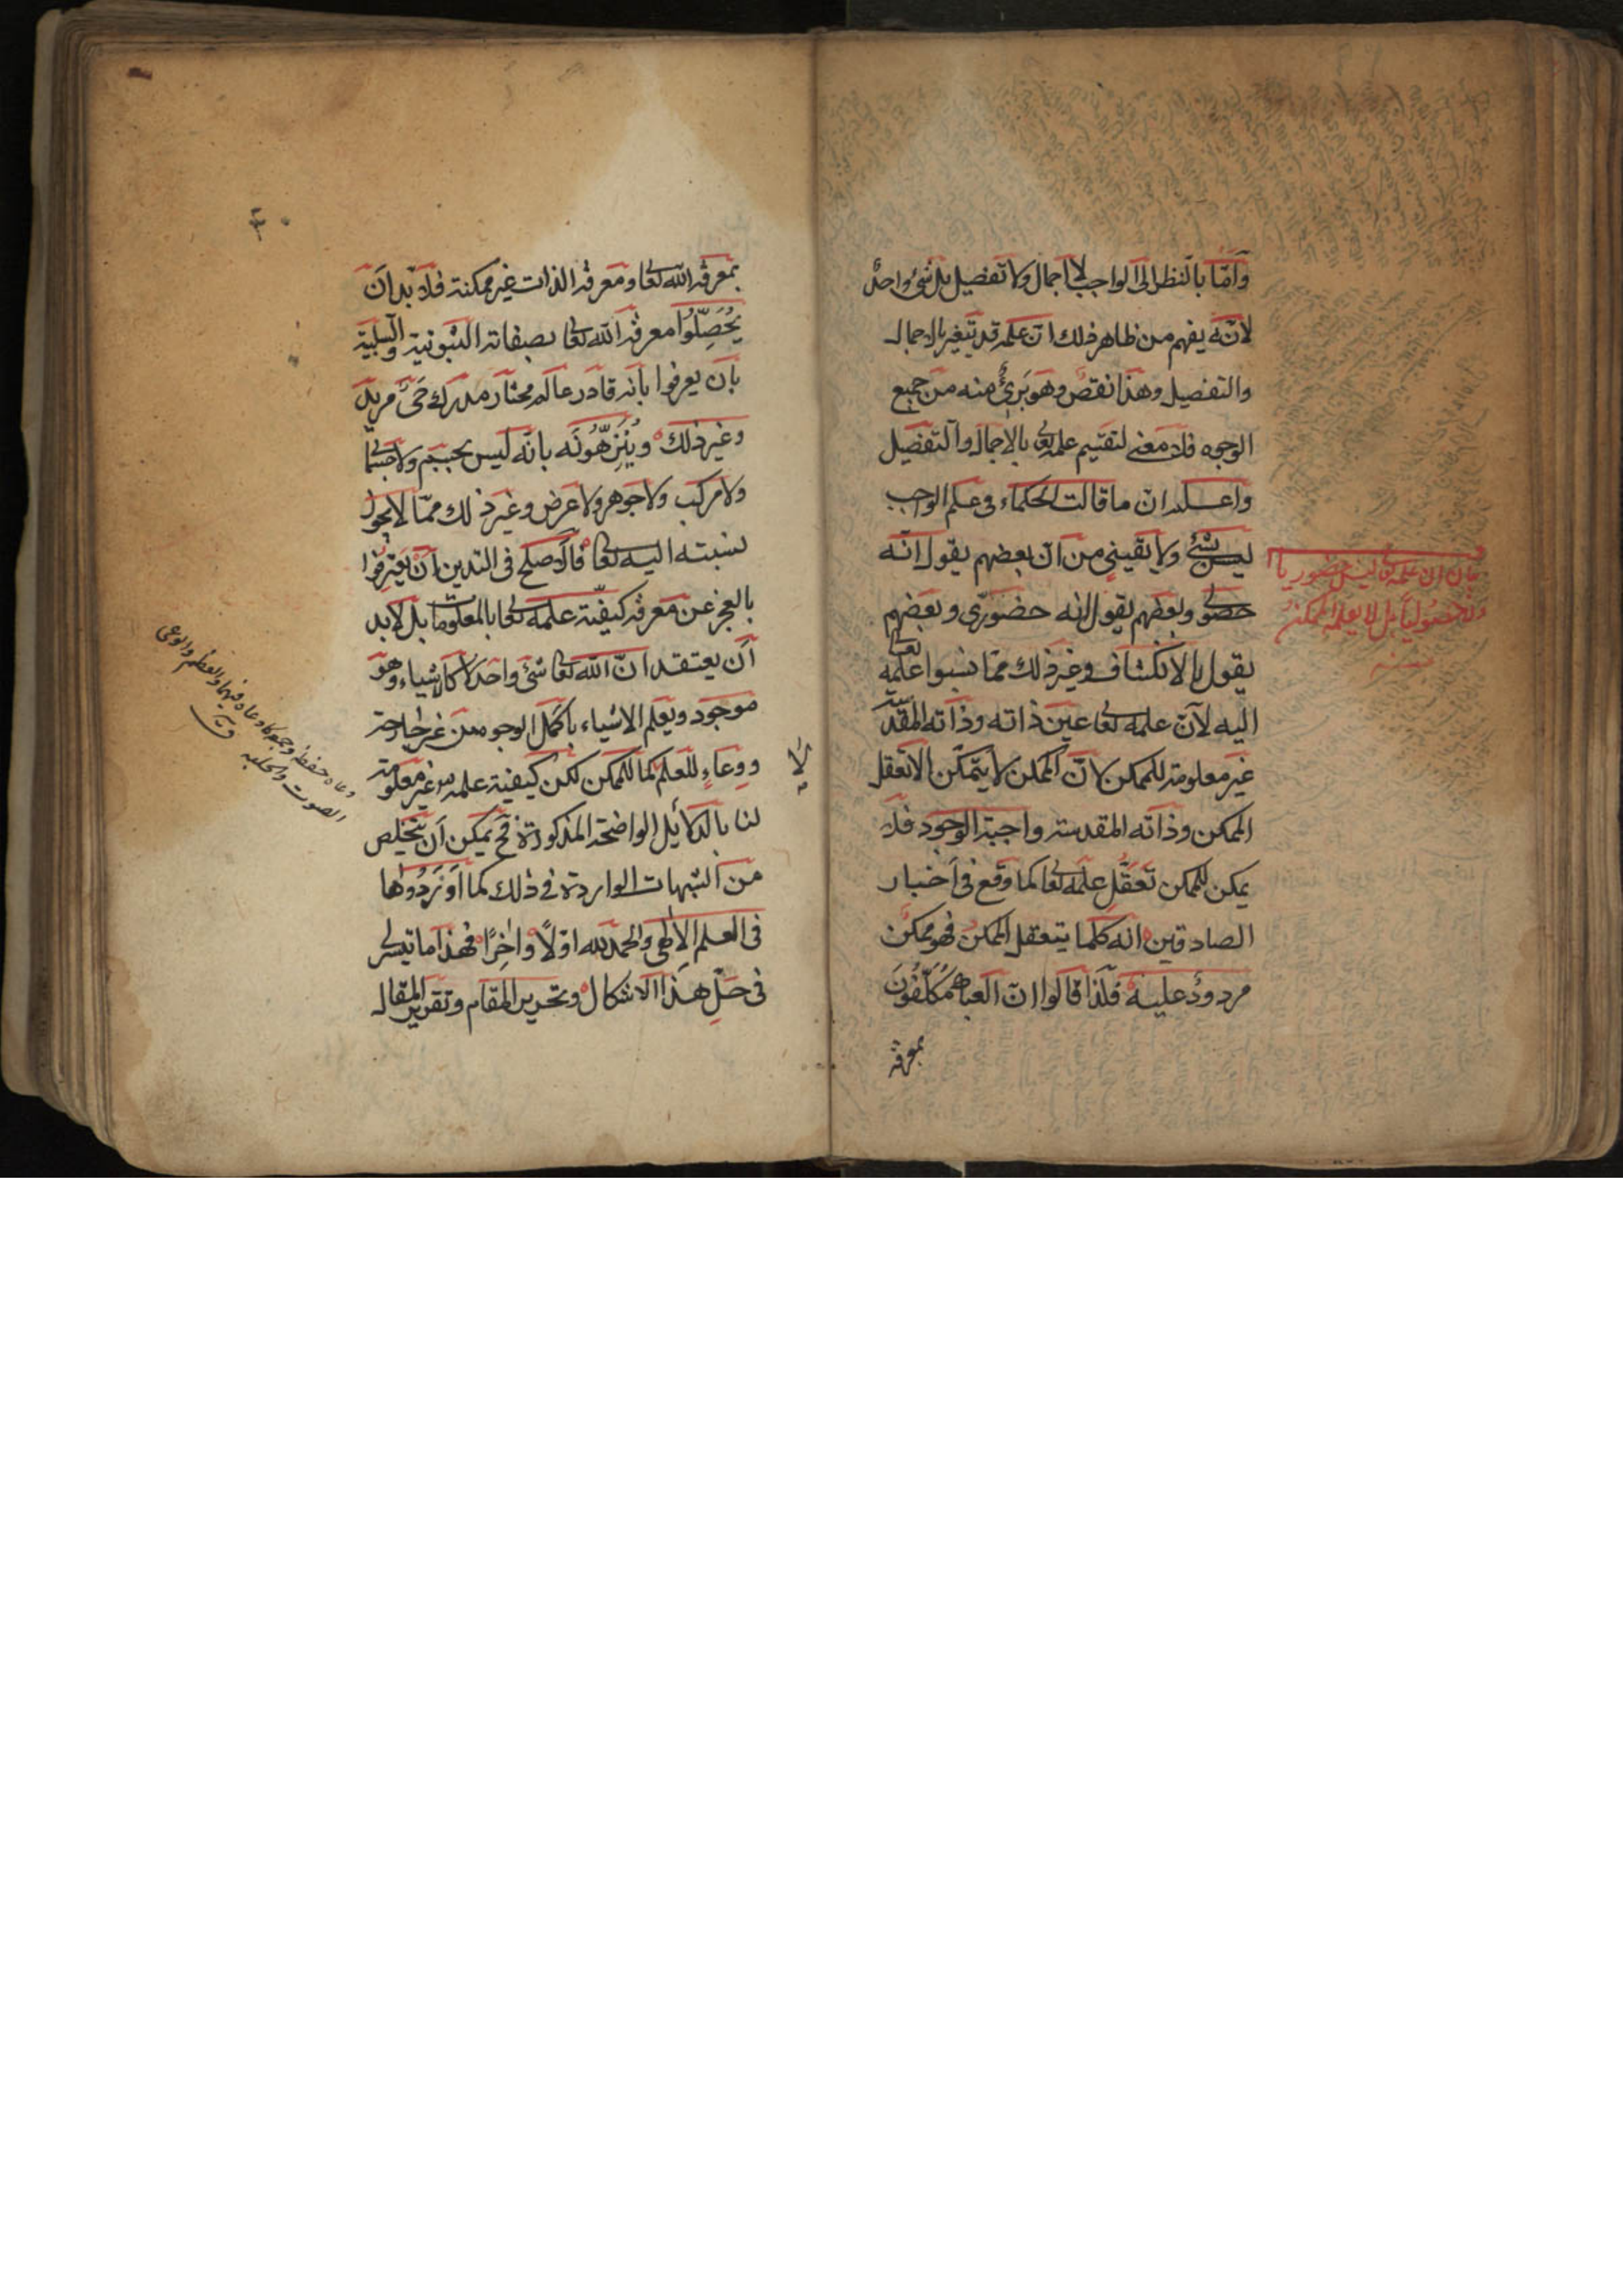 وَأمّا بالنظر إلى الواجب لا اجمال ولا تفصيل بل شئ واحدٌ
لانّه يفهم من ظاهر ذلك انّ علمه قد يتغير بالاجمال
والتفصيل وهذا نقصٌ وهو بَرِئٌ منه من جميع
الوجوه فلا معنى لتقسيم علمه تعا بالاجمال والتفصيل
واعلم انّ ما قالت الحكماء فى علم الواجب
ليس بشئ ولا يقينى من انّ بعضهم يقول انّه
حصولى وبعضهم يقول انه حضورى وبعضهم
يقول بالانكشاف وغير ذلك ممّا نسبوا علمه تعالى
اليه لانّ علمه تعا عين ذاته وذاته المقدسة
غير معلومة للممكن لانّ الممكن لا يتمكّن الا تعقل
الممكن وذاته المقدسة واجبة الوجود فلا
يمكن للممكن تعقّل علمه تعا كما وقع فى اخبار
الصادقين انه كلما يتعقل الممكن فهو ممكن
مردودٌ عليه فلذا قالوا انّ العباد هم مُكَلَّفُونَ
بمعرفة
بيان ان علمه تعا ليس حضوريا
ولا حصوليا بل لا يعلمه الممكن
بمعرفة الله تعا ومعرفة الذات غير ممكنة فلا بد ان
يُحَصِّلُوا معرفة الله تعا بصفاته الثبوتية والسلبية
بان يعرفوا بانه قادر عالم مختار مدرك حَىّ مريد
وغير ذلك ويُنَزِّهُونَه بانّه ليس بجسم ولا جسمانى
ولا مركب ولا جوهر ولا عرض وغير ذلك ممّا لا يجوز
نسبته اليه تعا فالاصلح فى التدين اَنْ يَعْتَرِفُوا
بالعجز عن معرفة كيفيّة علمه تعا بالمعلومات بل لا بد
اَن يعتقد انّ الله تعا شئ واحد لا كالاشياء وهو
موجود ويعلم الاشياء باكمل الوجوه من غير جارحة
ووِعَاءٍ للعلم كما للممكن لكن كيفية علمه غير معلومة
لنا بالدلائل الواضحة المذكورة فح يمكن اَن يتخلص
من الشبهات الواردة فى ذلك كما اَوْرَدُوها
فى العلم الالٰهى والحمد لله اوّلًا واٰخِرًا فهذا ما تيسر لى
فى حَلّ هذا الاشكال وتحرير المقام وتقرير المقال
وعاه حفظه وجمعه كاوعاه فيهما والعظم والوعى
الصوت والجلبه